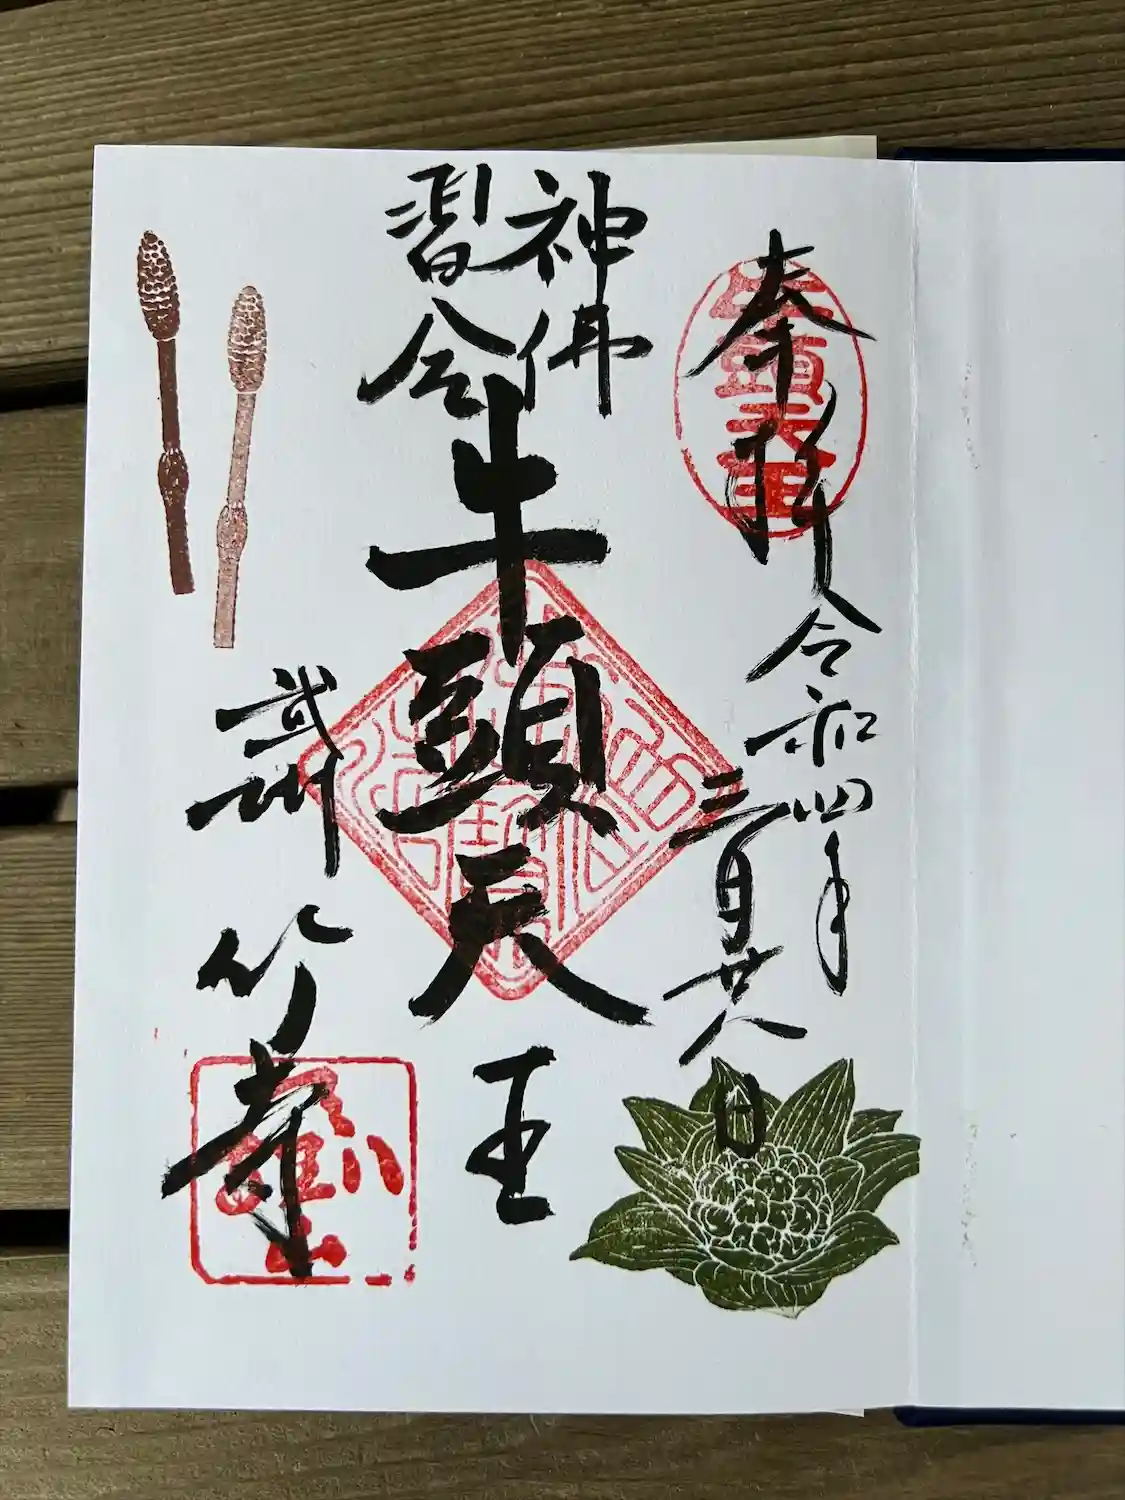 奉拝
牛頭天王
令和四年
三月廿八日
神佛
習合
牛頭天王
武州 竹寺